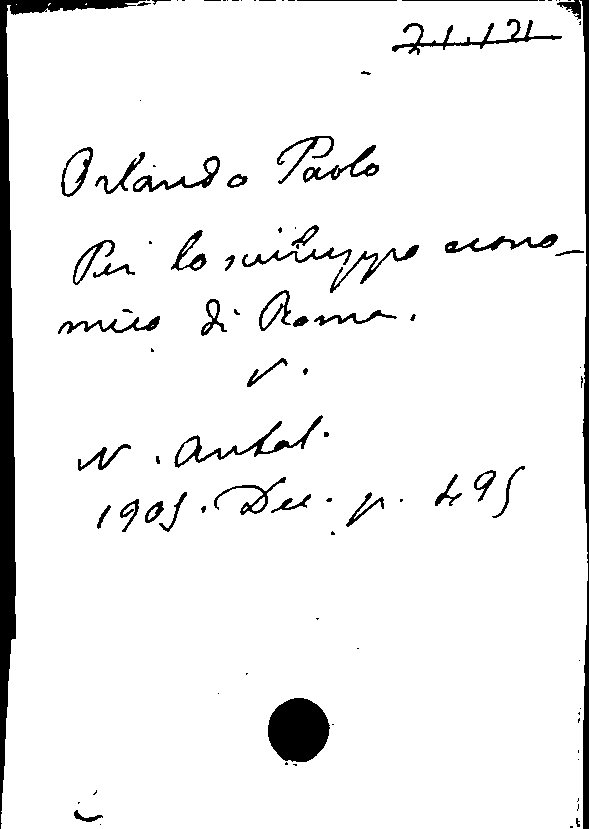 Orlando Paolo
Per lo sviluppo econo-
mico di Roma.
v.
N. Antol.
1905. Dec. p. 495